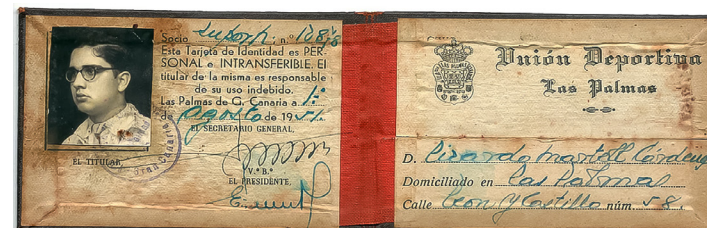 Socio n.º
Esta Tarjeta de Identidad es PER-
SONAL e INTRANSFERIBLE. El
titular de la misma es responsable
de su uso indebido.
Las Palmas de G. Canaria a 1º
de agosto de 1951.
EL SECRETARIO GENERAL,
EL TITULAR,
V.º B.º
EL PRESIDENTE,
Unión Deportiva
Las Palmas
D. Lizardo Martell Cárdenes
Domiciliado en Las Palmas
Calle León y Castillo núm. 58.